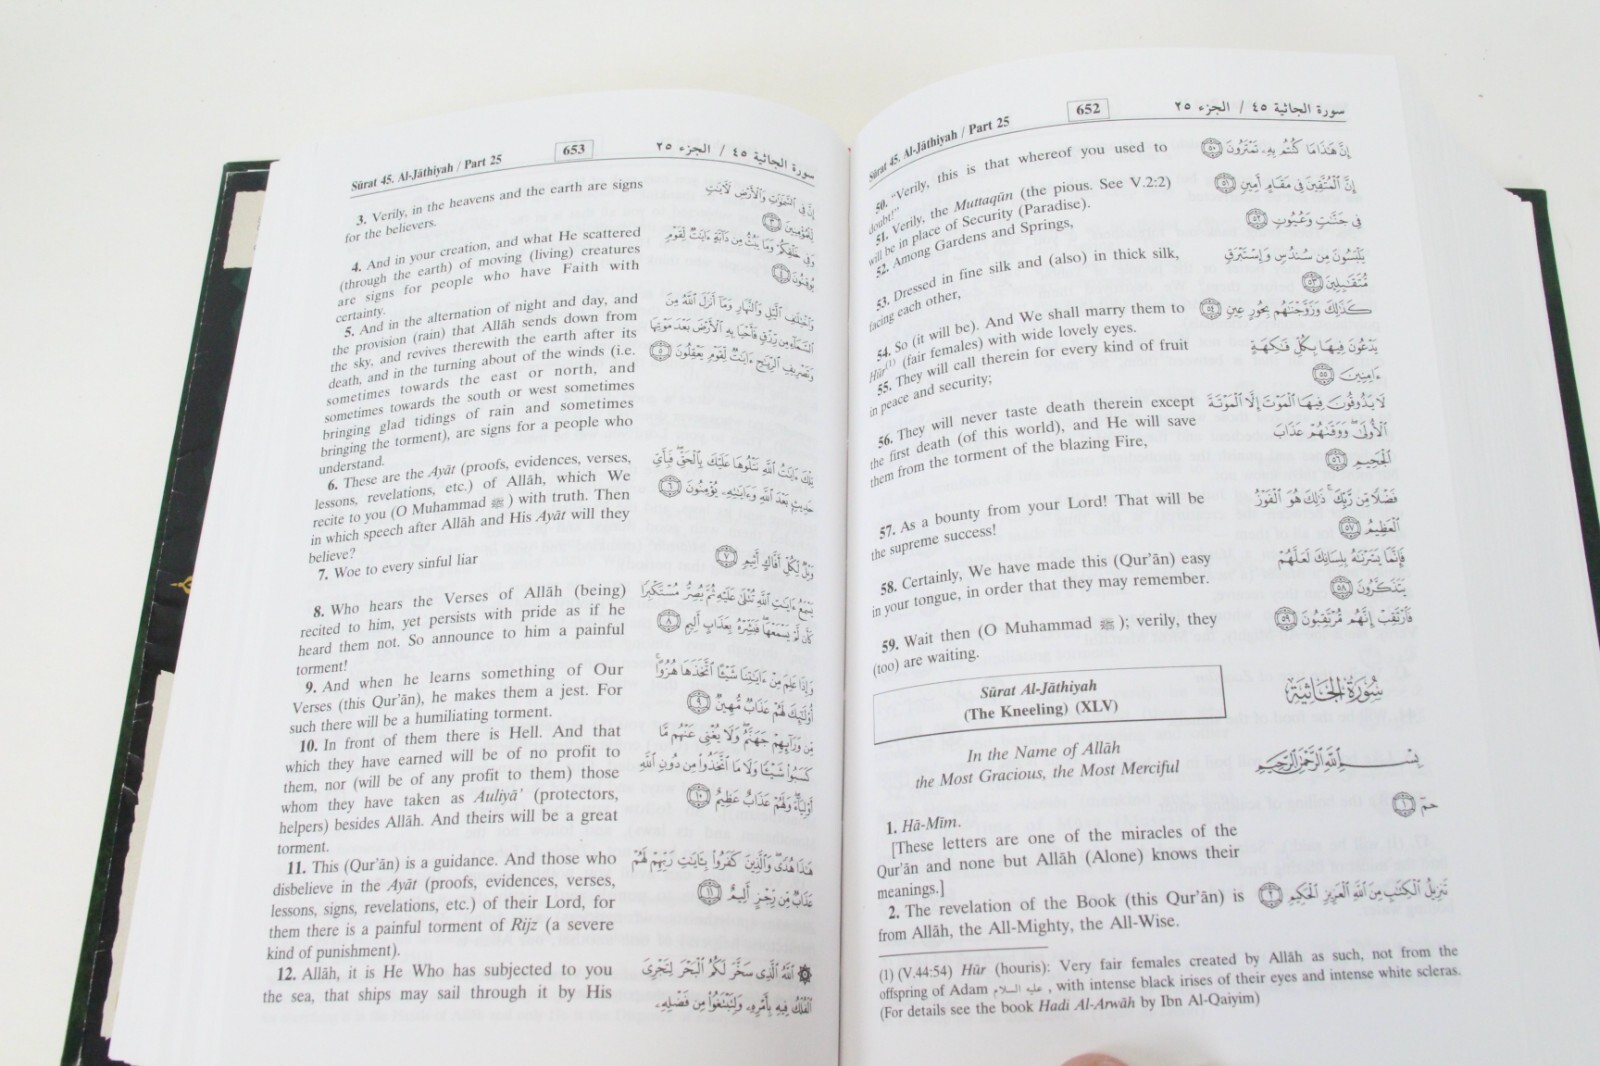 Sûrat 45. Al-Jâthiyah / Part 25
652
سورة الجاثية ٤٥ / الجزء ٢٥
50. "Verily, this is that whereof you used to
doubt!"
51. Verily, the Muttaqûn (the pious. See V.2:2)
will be in place of Security (Paradise).
52. Among Gardens and Springs,
53. Dressed in fine silk and (also) in thick silk,
facing each other,
54. So (it will be). And We shall marry them to
Hûr(1) (fair females) with wide lovely eyes.
55. They will call therein for every kind of fruit
in peace and security;
56. They will never taste death therein except
the first death (of this world), and He will save
them from the torment of the blazing Fire,
57. As a bounty from your Lord! That will be
the supreme success!
58. Certainly, We have made this (Qur'ân) easy
in your tongue, in order that they may remember.
59. Wait then (O Muhammad ﷺ); verily, they
(too) are waiting.
إِنَّ هَٰذَا مَا كُنتُم بِهِۦ تَمْتَرُونَ ٥٠
إِنَّ الْمُتَّقِينَ فِي مَقَامٍ أَمِينٍ ٥١
فِي جَنَّٰتٍ وَعُيُونٍ ٥٢
يَلْبَسُونَ مِن سُندُسٍ وَإِسْتَبْرَقٍ
مُّتَقَٰبِلِينَ ٥٣
كَذَٰلِكَ وَزَوَّجْنَٰهُم بِحُورٍ عِينٍ ٥٤
يَدْعُونَ فِيهَا بِكُلِّ فَٰكِهَةٍ
ءَامِنِينَ ٥٥
لَا يَذُوقُونَ فِيهَا الْمَوْتَ إِلَّا الْمَوْتَةَ
الْأُولَىٰ وَوَقَىٰهُمْ عَذَابَ
الْجَحِيمِ ٥٦
فَضْلًا مِّن رَّبِّكَ ذَٰلِكَ هُوَ الْفَوْزُ
الْعَظِيمُ ٥٧
فَإِنَّمَا يَسَّرْنَٰهُ بِلِسَانِكَ لَعَلَّهُمْ
يَتَذَكَّرُونَ ٥٨
فَارْتَقِبْ إِنَّهُم مُّرْتَقِبُونَ ٥٩
Sûrat Al-Jâthiyah
(The Kneeling) (XLV)
سُورَةُ الْجَاثِيَةِ
In the Name of Allâh
the Most Gracious, the Most Merciful
بِسْمِ اللَّهِ الرَّحْمَٰنِ الرَّحِيمِ
1. Hâ-Mîm.
[These letters are one of the miracles of the
Qur'ân and none but Allâh (Alone) knows their
meanings.]
2. The revelation of the Book (this Qur'ân) is
from Allâh, the All-Mighty, the All-Wise.
حمٓ ١
تَنزِيلُ الْكِتَٰبِ مِنَ اللَّهِ الْعَزِيزِ الْحَكِيمِ ٢
(1) (V.44:54) Hûr (houris): Very fair females created by Allâh as such, not from the
offspring of Adam عليه السلام, with intense black irises of their eyes and intense white scleras.
(For details see the book Hadi Al-Arwâh by Ibn Al-Qaiyim)
Sûrat 45. Al-Jâthiyah / Part 25
653
سورة الجاثية ٤٥ / الجزء ٢٥
3. Verily, in the heavens and the earth are signs
for the believers.
4. And in your creation, and what He scattered
(through the earth) of moving (living) creatures
are signs for people who have Faith with
certainty.
5. And in the alternation of night and day, and
the provision (rain) that Allâh sends down from
the sky, and revives therewith the earth after its
death, and in the turning about of the winds (i.e.
sometimes towards the east or north, and
sometimes towards the south or west sometimes
bringing glad tidings of rain and sometimes
bringing the torment), are signs for a people who
understand.
6. These are the Ayât (proofs, evidences, verses,
lessons, revelations, etc.) of Allâh, which We
recite to you (O Muhammad ﷺ) with truth. Then
in which speech after Allâh and His Ayât will they
believe?
7. Woe to every sinful liar
8. Who hears the Verses of Allâh (being)
recited to him, yet persists with pride as if he
heard them not. So announce to him a painful
torment!
9. And when he learns something of Our
Verses (this Qur'ân), he makes them a jest. For
such there will be a humiliating torment.
10. In front of them there is Hell. And that
which they have earned will be of no profit to
them, nor (will be of any profit to them) those
whom they have taken as Auliyâ' (protectors,
helpers) besides Allâh. And theirs will be a great
torment.
11. This (Qur'ân) is a guidance. And those who
disbelieve in the Ayât (proofs, evidences, verses,
lessons, signs, revelations, etc.) of their Lord, for
them there is a painful torment of Rijz (a severe
kind of punishment).
12. Allâh, it is He Who has subjected to you
the sea, that ships may sail through it by His
إِنَّ فِي السَّمَٰوَٰتِ وَالْأَرْضِ لَءَايَٰتٍ
لِّلْمُؤْمِنِينَ ٣
وَفِي خَلْقِكُمْ وَمَا يَبُثُّ مِن دَآبَّةٍ ءَايَٰتٌ لِّقَوْمٍ
يُوقِنُونَ ٤
وَاخْتِلَٰفِ الَّيْلِ وَالنَّهَارِ وَمَآ أَنزَلَ اللَّهُ مِنَ
السَّمَآءِ مِن رِّزْقٍ فَأَحْيَا بِهِ الْأَرْضَ بَعْدَ مَوْتِهَا
وَتَصْرِيفِ الرِّيَٰحِ ءَايَٰتٌ لِّقَوْمٍ يَعْقِلُونَ ٥
تِلْكَ ءَايَٰتُ اللَّهِ نَتْلُوهَا عَلَيْكَ بِالْحَقِّ فَبِأَيِّ
حَدِيثٍ بَعْدَ اللَّهِ وَءَايَٰتِهِۦ يُؤْمِنُونَ ٦
وَيْلٌ لِّكُلِّ أَفَّاكٍ أَثِيمٍ ٧
يَسْمَعُ ءَايَٰتِ اللَّهِ تُتْلَىٰ عَلَيْهِ ثُمَّ يُصِرُّ مُسْتَكْبِرًا
كَأَن لَّمْ يَسْمَعْهَا فَبَشِّرْهُ بِعَذَابٍ أَلِيمٍ ٨
وَإِذَا عَلِمَ مِنْ ءَايَٰتِنَا شَيْـًٔا اتَّخَذَهَا هُزُوًا
أُولَٰٓئِكَ لَهُمْ عَذَابٌ مُّهِينٌ ٩
مِّن وَرَآئِهِمْ جَهَنَّمُ وَلَا يُغْنِي عَنْهُم مَّا
كَسَبُوا شَيْـًٔا وَلَا مَا اتَّخَذُوا مِن دُونِ اللَّهِ
أَوْلِيَآءَ وَلَهُمْ عَذَابٌ عَظِيمٌ ١٠
هَٰذَا هُدًى وَالَّذِينَ كَفَرُوا بِـَٔايَٰتِ رَبِّهِمْ لَهُمْ
عَذَابٌ مِّن رِّجْزٍ أَلِيمٌ ١١
۞ اللَّهُ الَّذِي سَخَّرَ لَكُمُ الْبَحْرَ لِتَجْرِيَ
الْفُلْكُ فِيهِ بِأَمْرِهِۦ وَلِتَبْتَغُوا مِن فَضْلِهِۦ